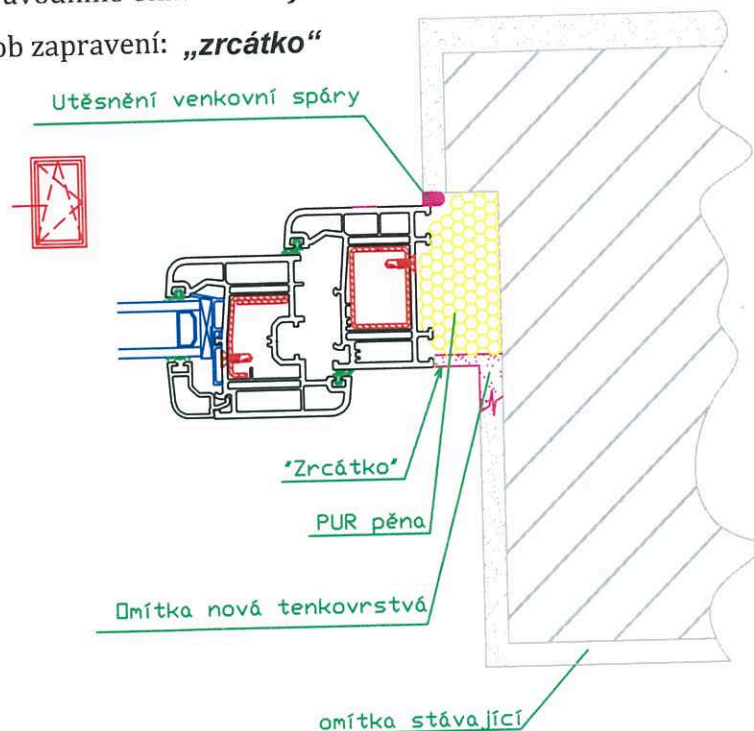 ob zapravení: „zrcátko“
Utěsnění venkovní spáry
"Zrcátko"
PUR pěna
Omítka nová tenkovrstvá
omítka stávající